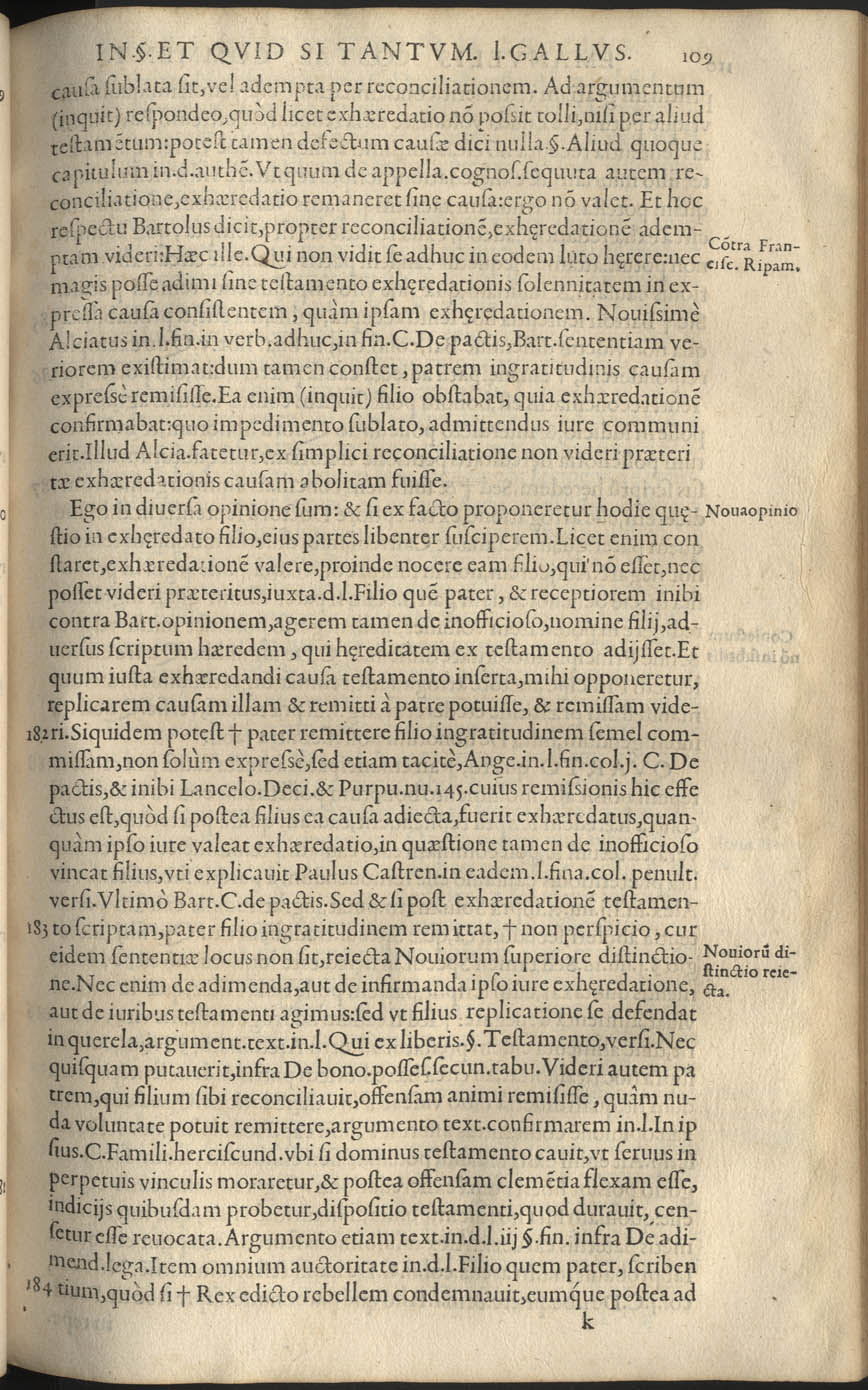 IN.§.ET QVID SI TANTVM. l.GALLVS. 109
cauſa ſublata ſit,vel adempta per reconciliationem. Ad argumentum
(inquit) reſpondeo,quòd licet exhæredatio nō poſsit tolli,niſi per aliud
teſtamētum:poteſt tamen defectum cauſæ dici nulla.§.Aliud quoque
capitulum in.d.authē.Vt quum de appella.cognoſ.ſequuta autem re-
conciliatione,exhæredatio remaneret ſine cauſa:ergo nō valet. Et hoc
reſpectu Bartolus dicit,propter reconciliationē,exhęredationē adem-
ptam videri:Hæc ille.Qui non vidit ſe adhuc in eodem luto hęrere:nec
Cōtra Fran-
ciſc. Ripam.
magis poſſe adimi ſine teſtamento exhęredationis ſolennitatem in ex-
preſſa cauſa conſiſtentem, quàm ipſam exhęredationem. Nouiſsimè
Alciatus in.l.fin.in verb.adhuc,in fin.C.De pactis,Bart.ſententiam ve-
riorem exiſtimat:dum tamen conſtet, patrem ingratitudinis cauſam
expreſsè remiſiſſe.Ea enim (inquit) filio obſtabat, quia exhæredationē
confirmabat:quo impedimento ſublato, admittendus iure communi
erit.Illud Alcia.fatetur,ex ſimplici reconciliatione non videri præteri
tæ exhæredationis cauſam abolitam fuiſſe.
Ego in diuerſa opinione ſum: & ſi ex facto proponeretur hodie quę-
Noua opinio
ſtio in exhęredato filio,eius partes libenter ſuſciperem.Licet enim con
ſtaret,exhæredationē valere,proinde nocere eam filio,qui nō eſſet,nec
poſſet videri præteritus,iuxta.d.l.Filio quē pater, & receptiorem inibi
contra Bart.opinionem,agerem tamen de inofficioſo,nomine filij,ad-
uerſus ſcriptum hæredem, qui hęreditatem ex teſtamento adijſſet.Et
quum iuſta exhæredandi cauſa teſtamento inſerta,mihi opponeretur,
replicarem cauſam illam & remitti à patre potuiſſe, & remiſſam vide-
182 ri.Siquidem poteſt † pater remittere filio ingratitudinem ſemel com-
miſſam,non ſolùm expreſsè,ſed etiam tacitè,Ange.in.l.fin.col.j. C. De
pactis,& inibi Lancelo.Deci.& Purpu.nu.145.cuius remiſsionis hic effe
ctus eſt,quòd ſi poſtea filius ea cauſa adiecta,fuerit exhæredatus,quan-
quàm ipſo iure valeat exhæredatio,in quæſtione tamen de inofficioſo
vincat filius,vti explicauit Paulus Caſtren.in eadem.l.fina.col. penult.
verſi.Vltimò Bart.C.de pactis.Sed & ſi poſt exhæredationē teſtamen-
183 to ſcriptam,pater filio ingratitudinem remittat, † non perſpicio, cur
eidem ſententiæ locus non ſit,reiecta Nouiorum ſuperiore diſtinctio-
Nouiorū di-
ſtinctio reie-
cta.
ne.Nec enim de adimenda,aut de infirmanda ipſo iure exhęredatione,
aut de iuribus teſtamenti agimus:ſed vt filius replicatione ſe defendat
in querela,argument.text.in.l.Qui ex liberis.§.Teſtamento,verſi.Nec
quiſquam putauerit,infra De bono.poſſeſ.ſecun.tabu.Videri autem pa
trem,qui filium ſibi reconciliauit,offenſam animi remiſiſſe, quàm nu-
da voluntate potuit remittere,argumento text.confirmarem in.l.In ip
ſius.C.Famili.herciſcund.vbi ſi dominus teſtamento cauit,vt ſeruus in
perpetuis vinculis moraretur,& poſtea offenſam clemētia flexam eſſe,
indicijs quibuſdam probetur,diſpoſitio teſtamenti,quod durauit, cen-
ſetur eſſe reuocata.Argumento etiam text.in.d.l.iij §.fin. infra De adi-
mend.lega.Item omnium auctoritate in.d.l.Filio quem pater, ſcriben
184 tium,quòd ſi † Rex edicto rebellem condemnauit,eumq́ue poſtea ad
k